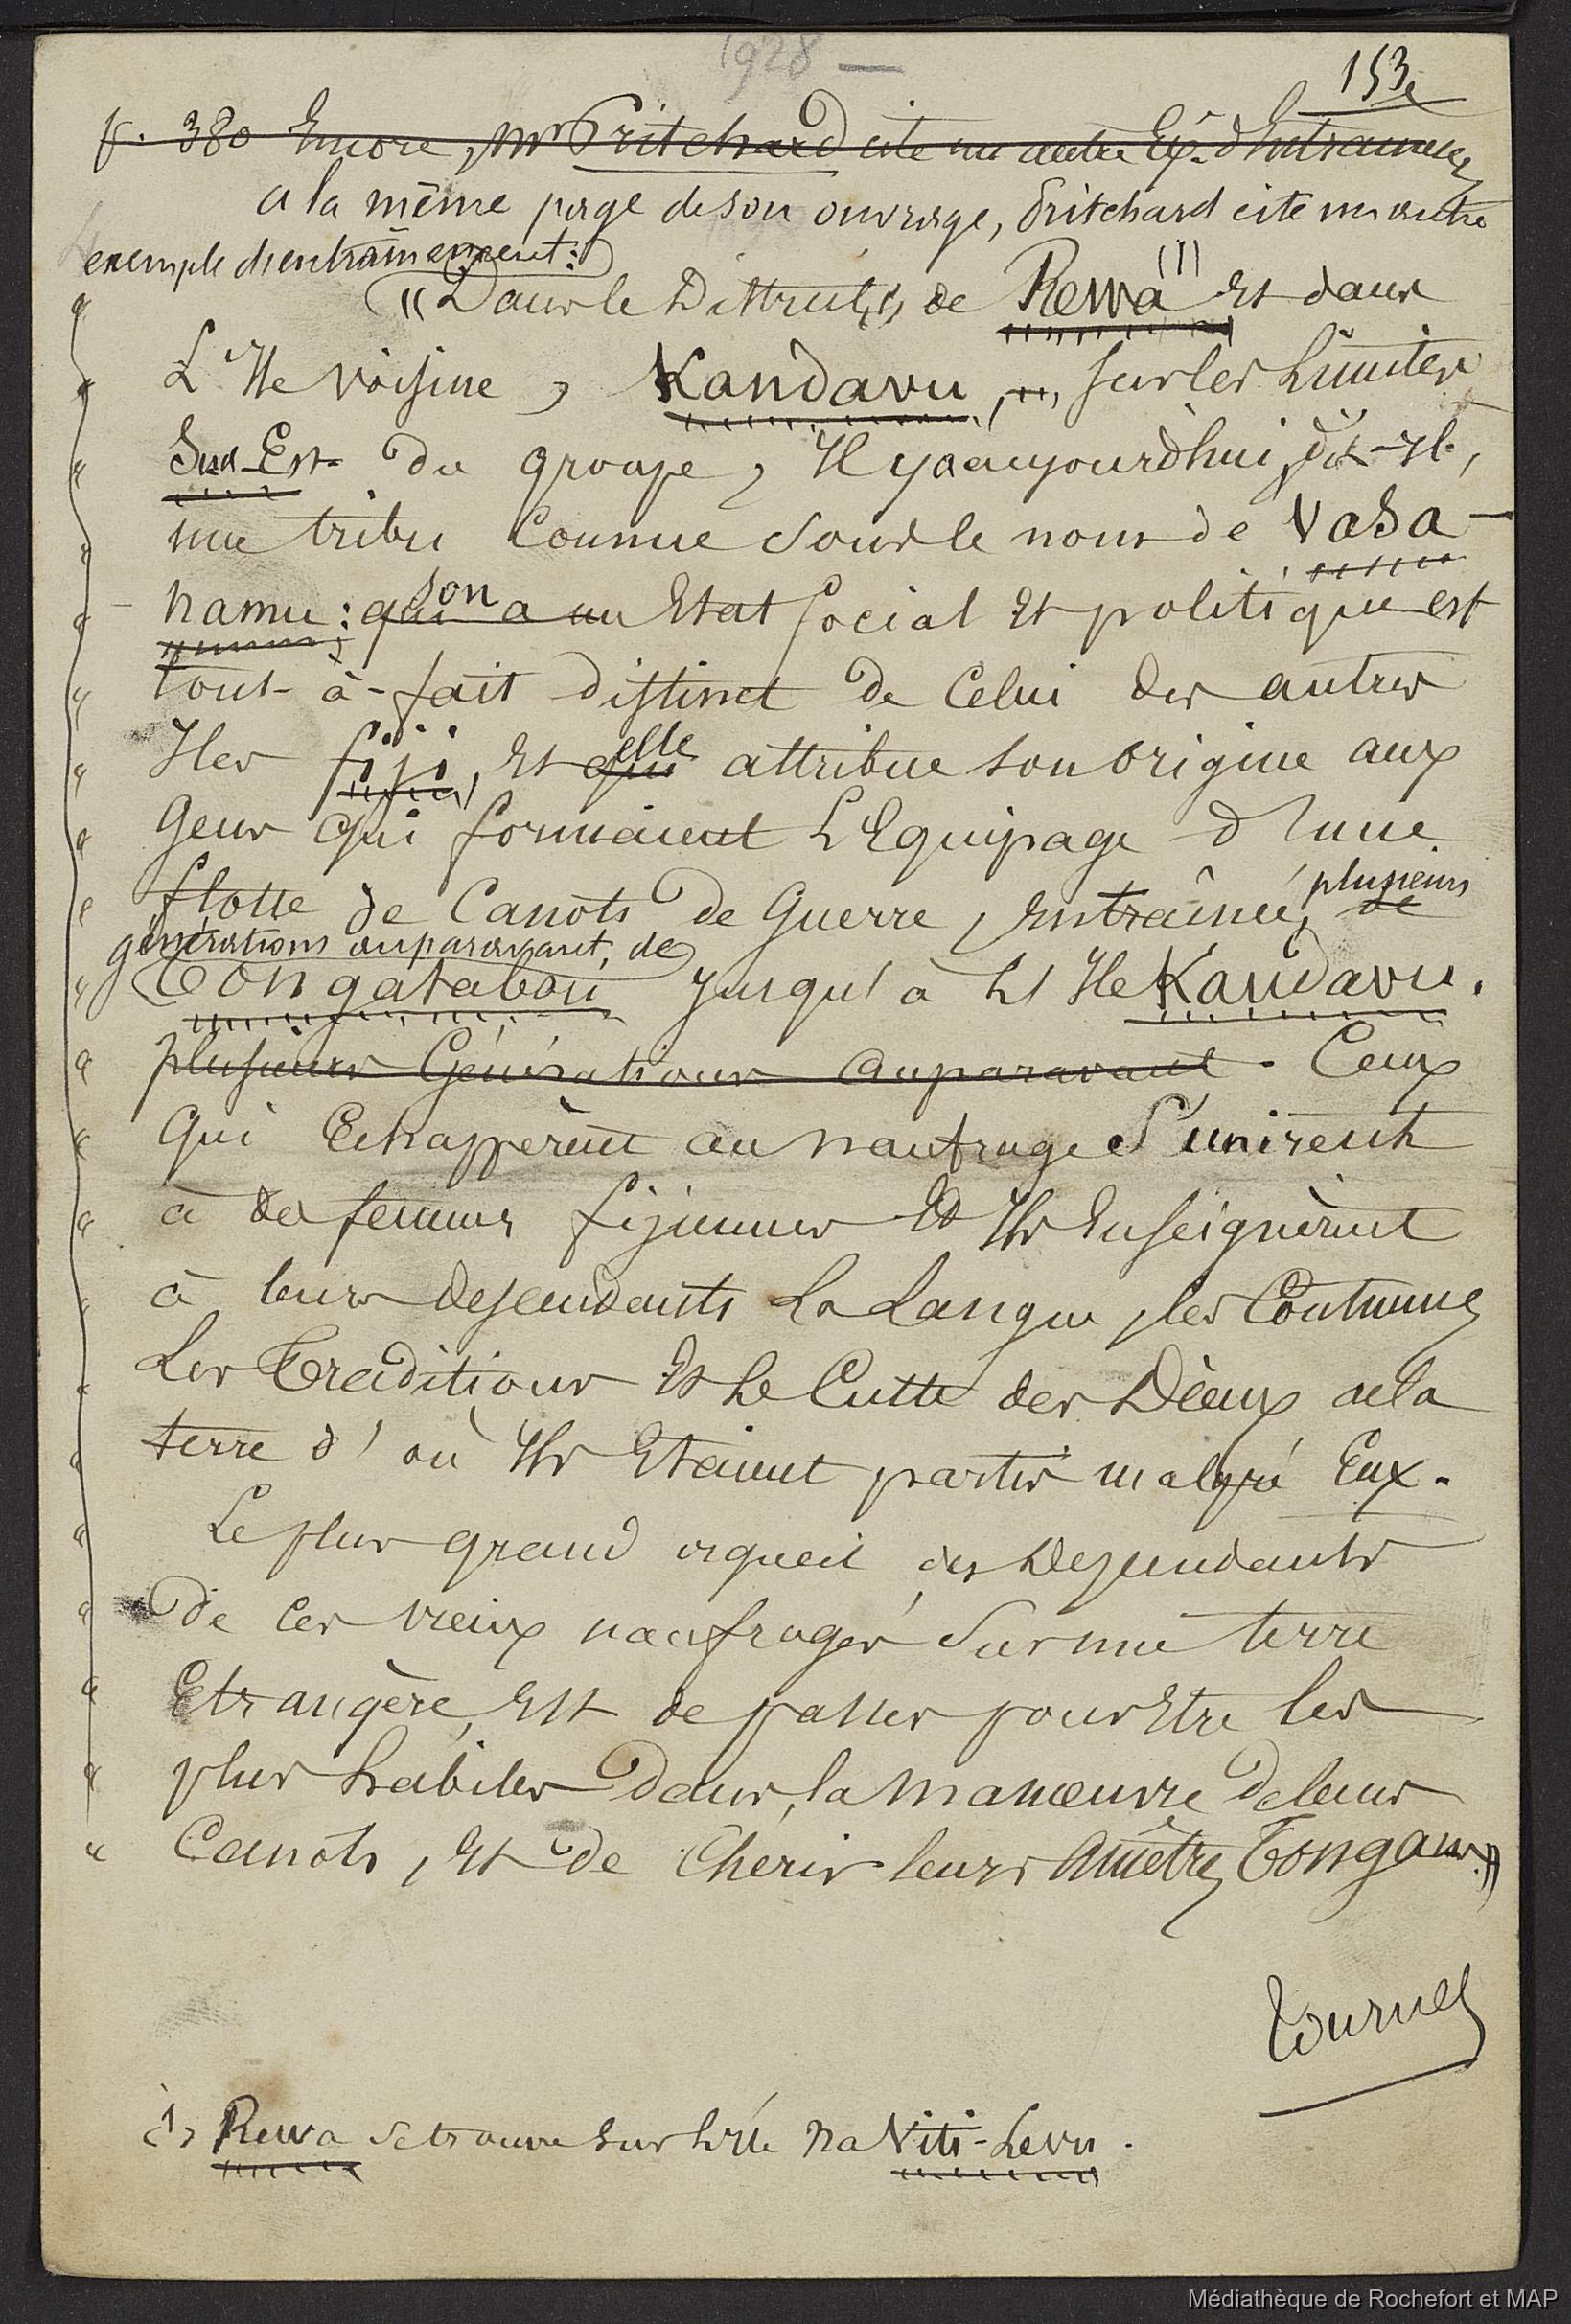 1928 —
153
p. 380 Encore, Mr Pritchard cite un autre Ex. d'Entrainement
a la même page de son ouvrage, Pritchard cite un autre
exemple d'entraînement:
"Dans le District, de Rewa (1) Et dans
L'Ile voisine, Kandavu, sur les Limites
Sud-Est du groupe, Il y a aujourd'hui, dit-il,
une tribu Connue Sous le nom de Vasa-
namu: qui a un son Etat Social Et politique est
tout-à-fait distinct de Celui des autres
Iles fiji, Et qui elle attribue son origine aux
Gens Qui formaient L'Equipage d'une
flotte de Canots de Guerre, Entraînée, de plusieurs
générations auparavant, de
Tongatabou jusqu'à L'Ile Kandavu.
plusieurs Générations auparavant. Ceux
Qui Echappèrent au naufrage S'unirent
à des femmes fijiennes Et Ils Enseignèrent
à leurs descendants La Langue, les Coutumes
Les Traditions Et le Culte des Dieux de la
terre d'où Ils Etaient partis malgré Eux.
Le plus grand orgueil des Descendants
de Ces vieux naufragés Sur une terre
Etrangère, Est de passer pour Etre les
plus habiles dans la manœuvre de leurs
Canots, Et de Chérir leurs Ancêtres Tongans."
Tournez
(1) Rewa se trouve sur L'Ile Na Viti-Levu.
Médiathèque de Rochefort et MAP